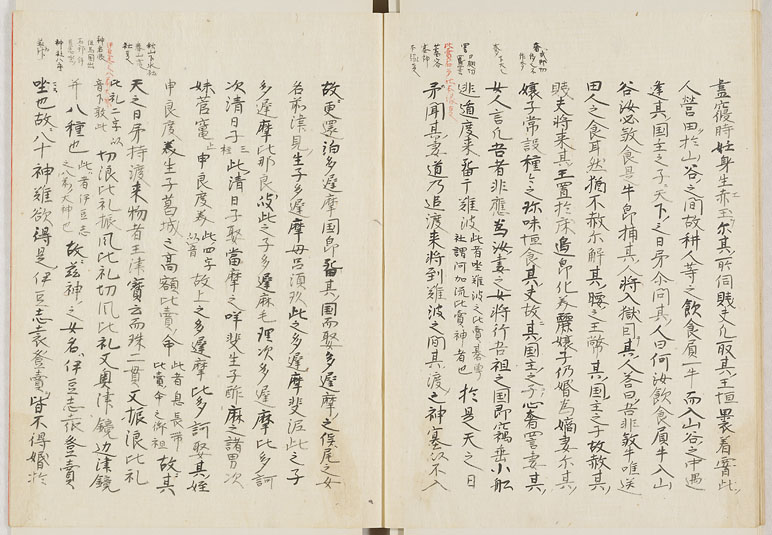 盡寢時妊身生赤玉尓其所伺賤夫乞取其玉恒裹着腰此
人營田於山谷之間故耕人等之飲食負一牛而入山谷之中遇
逢其国主之子天下之日矛尓問其人曰何汝飲食負牛入山
谷汝必殺食是牛即捕其人将入獄囚其人荅曰吾非殺牛唯送
田人之食耳然猶不赦尓解其腰之玉幣其国主之子故赦其
賤夫将来其玉置於床邊即化美麗孃子仍婚為嫡妻尓其
孃子常設種々之珎味恒食其夫故其国主之子心奢詈妻其
女人言凡吾者非應為汝妻之女将行吾祖之国即竊乗小舩
逃遁度来留于難波此者坐難波之比賣碁曽社謂阿加流比賣神者也於是天之日
矛聞其妻遁乃追渡来将到難波之間其渡之神塞以不入
故更還泊多遅摩国即留其国而娶多遅摩之俣尾之女
名前津見生子多遅摩母呂須玖此之子多遅摩斐泥此之子
多遅摩比那良岐此之子多遅麻毛理次多遅摩比多訶
次清日子三柱此清日子娶當摩之咩斐生子酢麻之諸男次
妹菅竈上由良度美此四字以音故上之多遅摩比多訶娶其姪
由良度美生子葛城之高額比賣命此者息長帯比賣命之御祖故其
天之日矛持渡来物者玉津寶云而珠二貫又振浪比礼
比礼二字以音下效此切浪比礼振風比礼切風比礼又奥津鏡邊津鏡
并八種也此者伊豆志之八前大神也故茲神之女名伊豆志袁登賣
坐也故八十神雖欲得是伊豆志袁登賣皆不得婚於